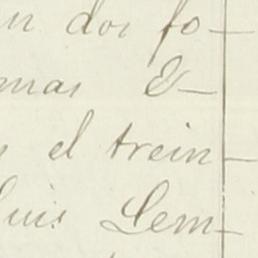 n dos fo-
mas &-
s el trein-
Luis Lem-